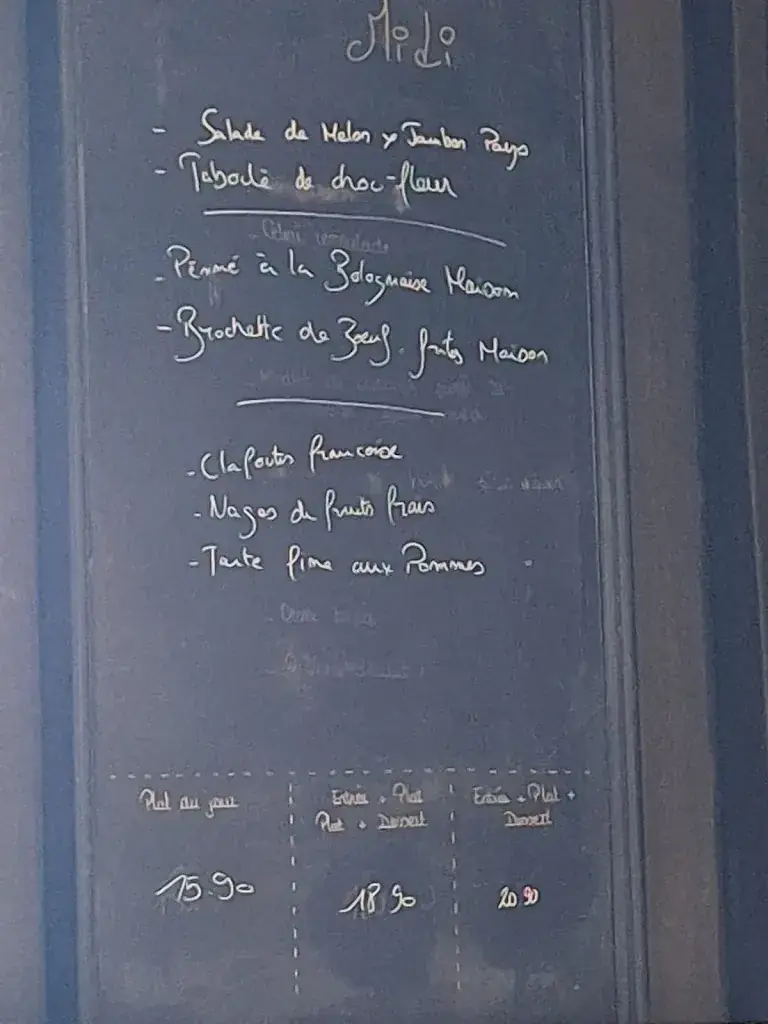 Midi
- Salade de Melon x Jambon Pays
- Taboulé de chou-fleur
- Penné à la Bolognaise Maison
- Brochette de Boeuf. frites Maison
- Clafoutis francoise
- Nages de fruits frais
- Tarte fine aux Pommes
Plat du jour
Entrée + Plat
Plat + Dessert
Entrée + Plat +
Dessert
15.90
18 90
20 90